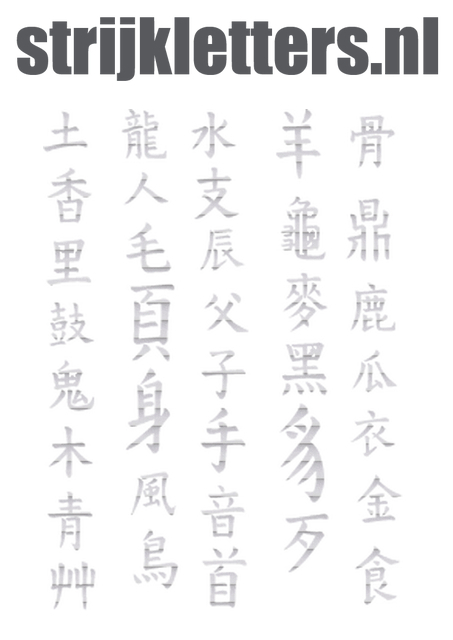 strijkletters.nl
土
香
里
鼓
鬼
木
青
艸
龍
人
毛
頁
身
風
鳥
水
支
辰
父
子
手
音
首
羊
龜
麥
黑
豸
歹
骨
鼎
鹿
瓜
衣
金
食